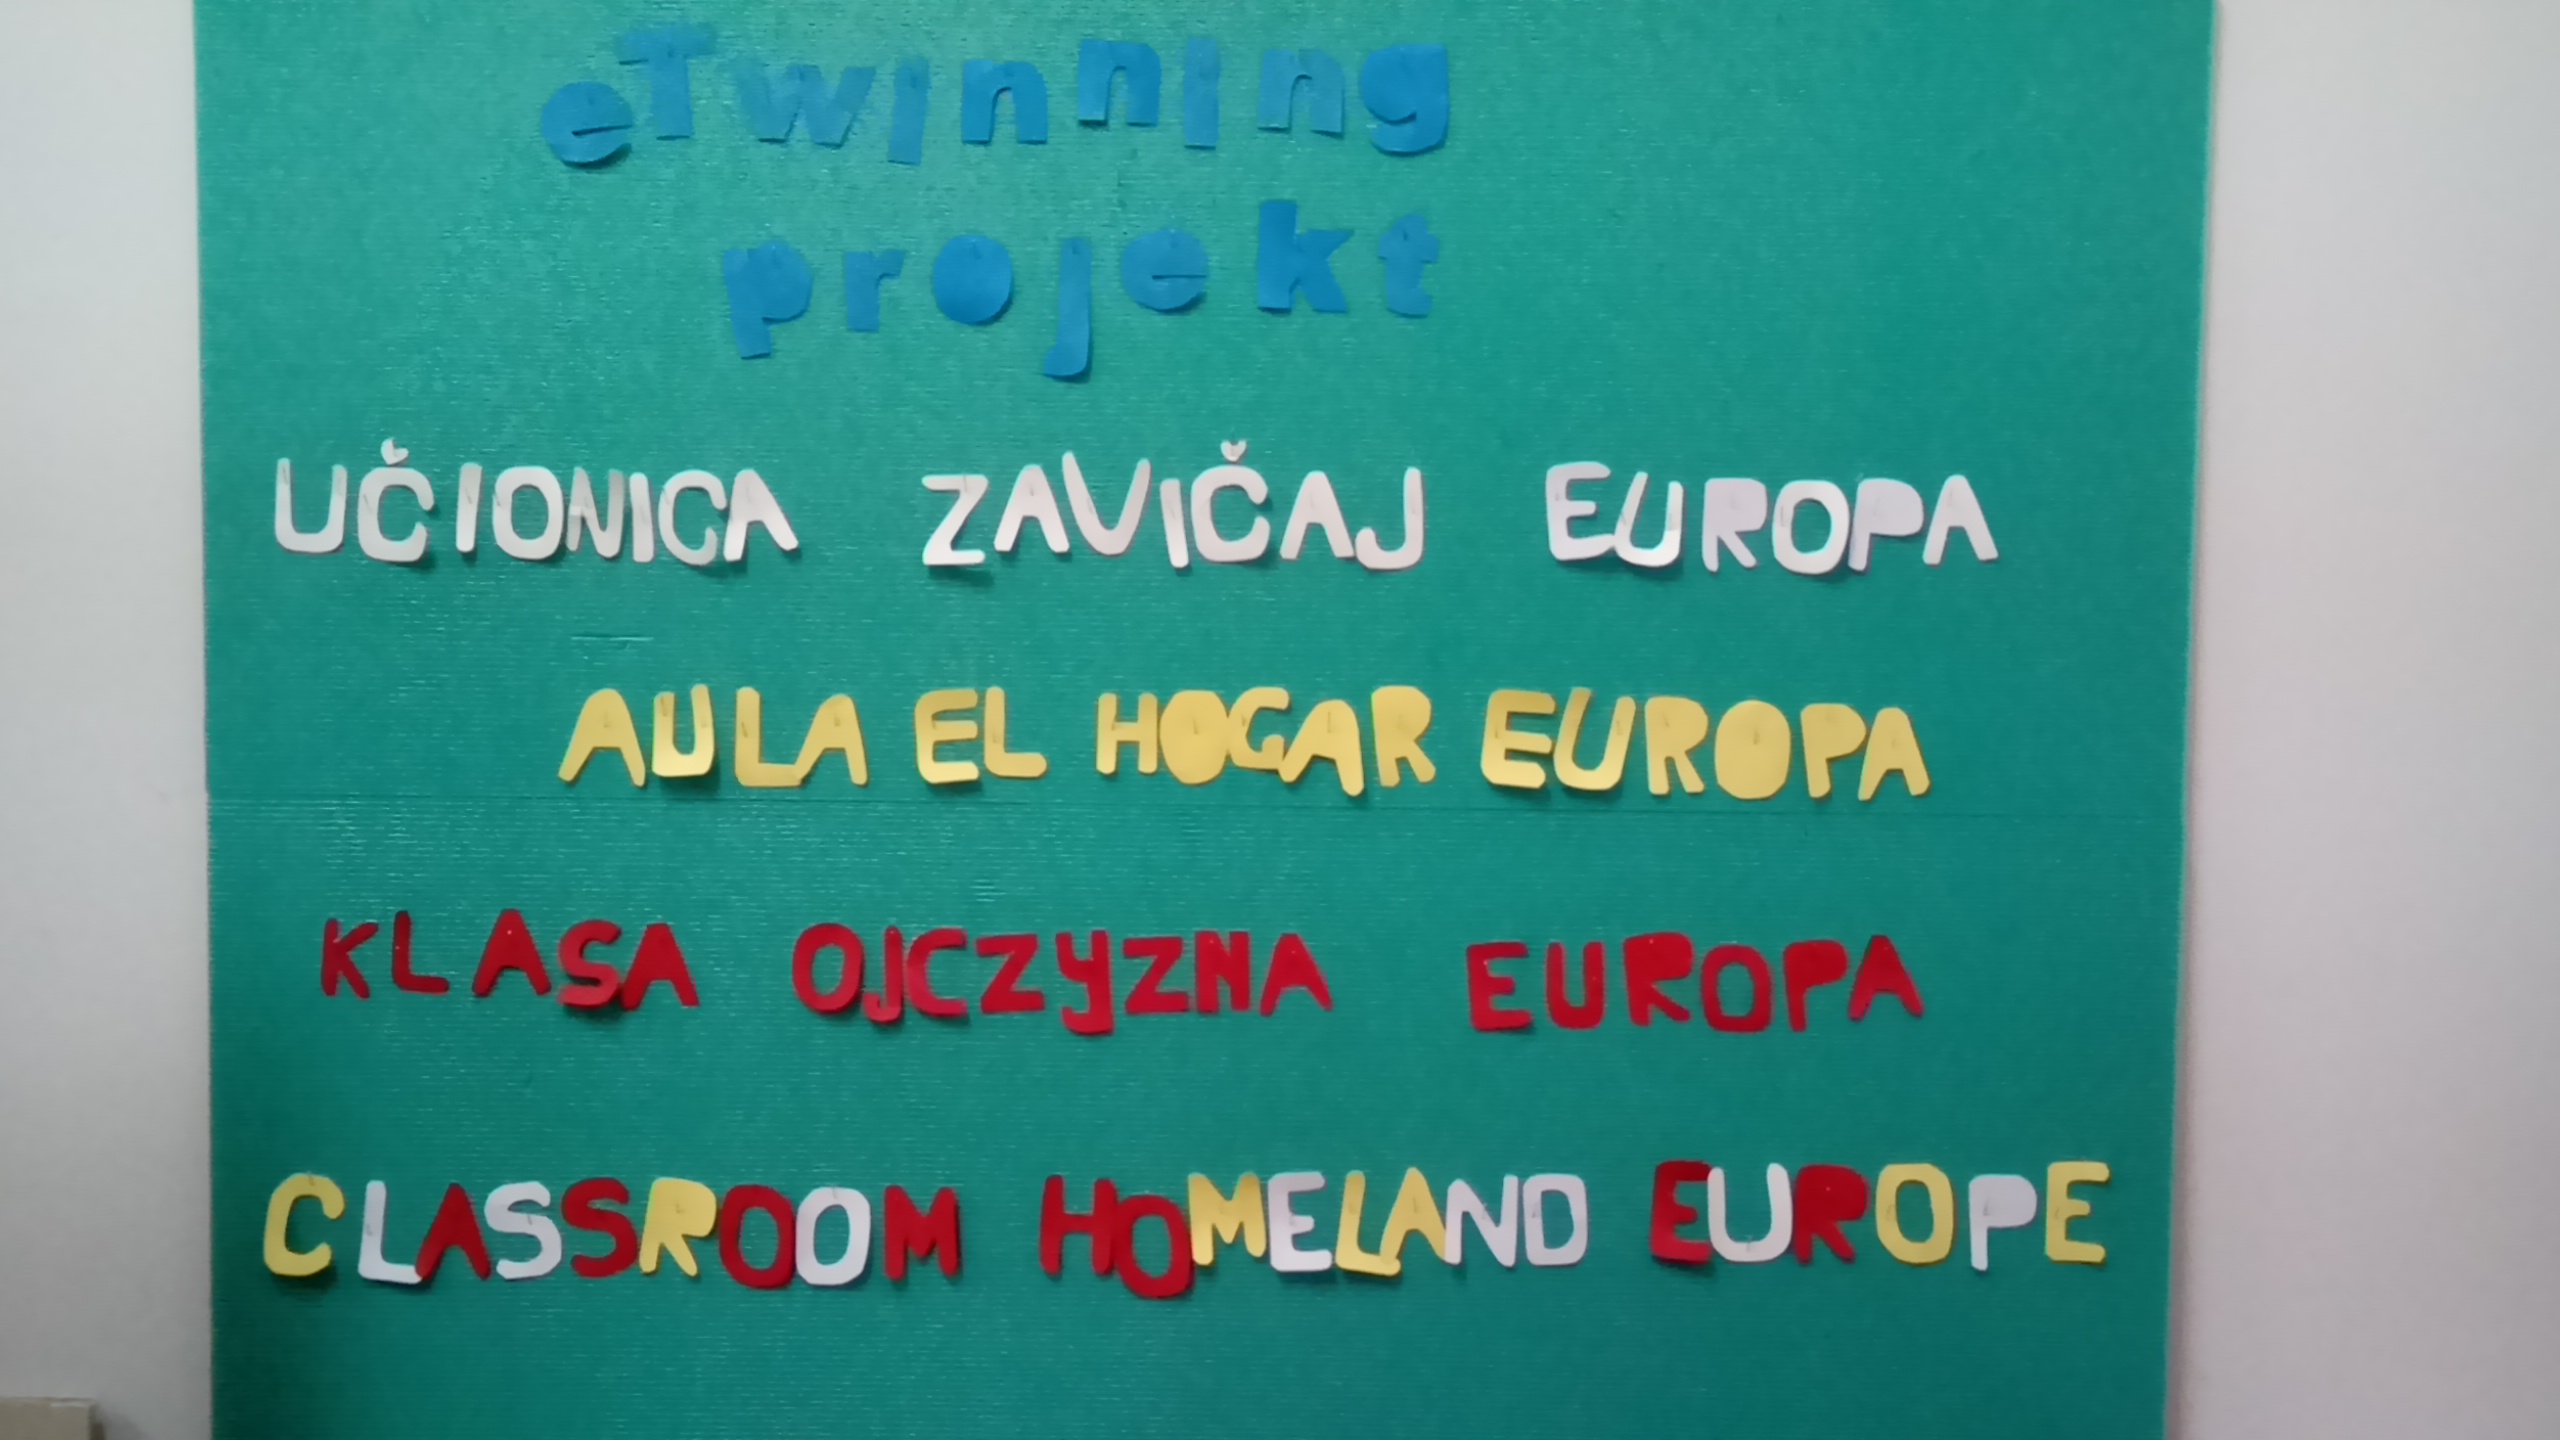 eTwinning
projekt
UČIONICA ZAVIČAJ EUROPA
AULA EL HOGAR EUROPA
KLASA OJCZYZNA EUROPA
CLASSROOM HOMELAND EUROPE